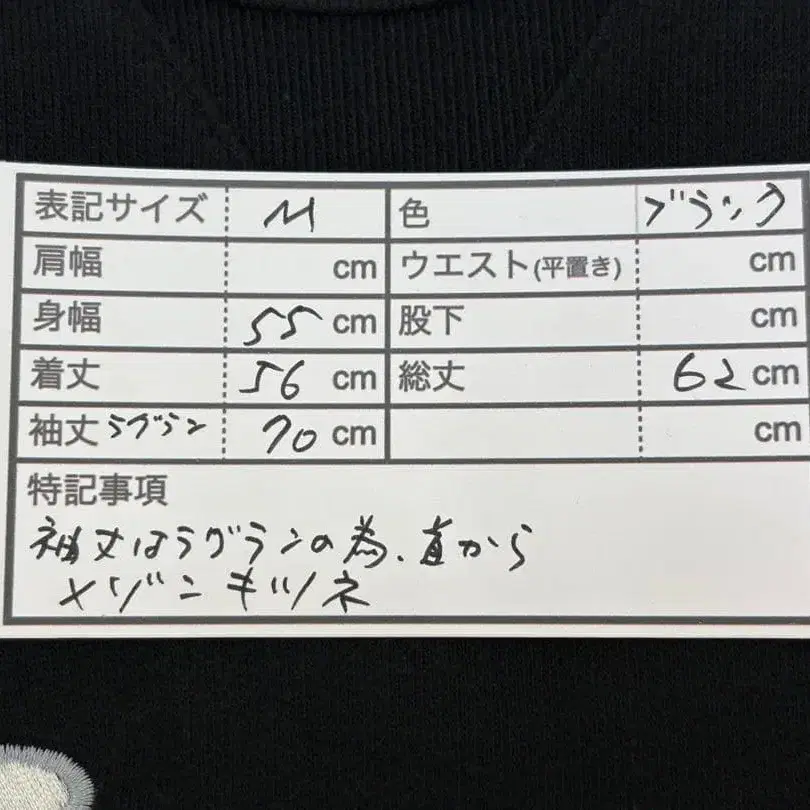 表記サイズ M 色 ブラック
肩幅 cm ウエスト(平置き) cm
身幅 55 cm 股下 cm
着丈 56 cm 総丈 62 cm
袖丈 ラグラン 70 cm cm
特記事項
袖丈はラグランの為、直から
メゾンキツネ